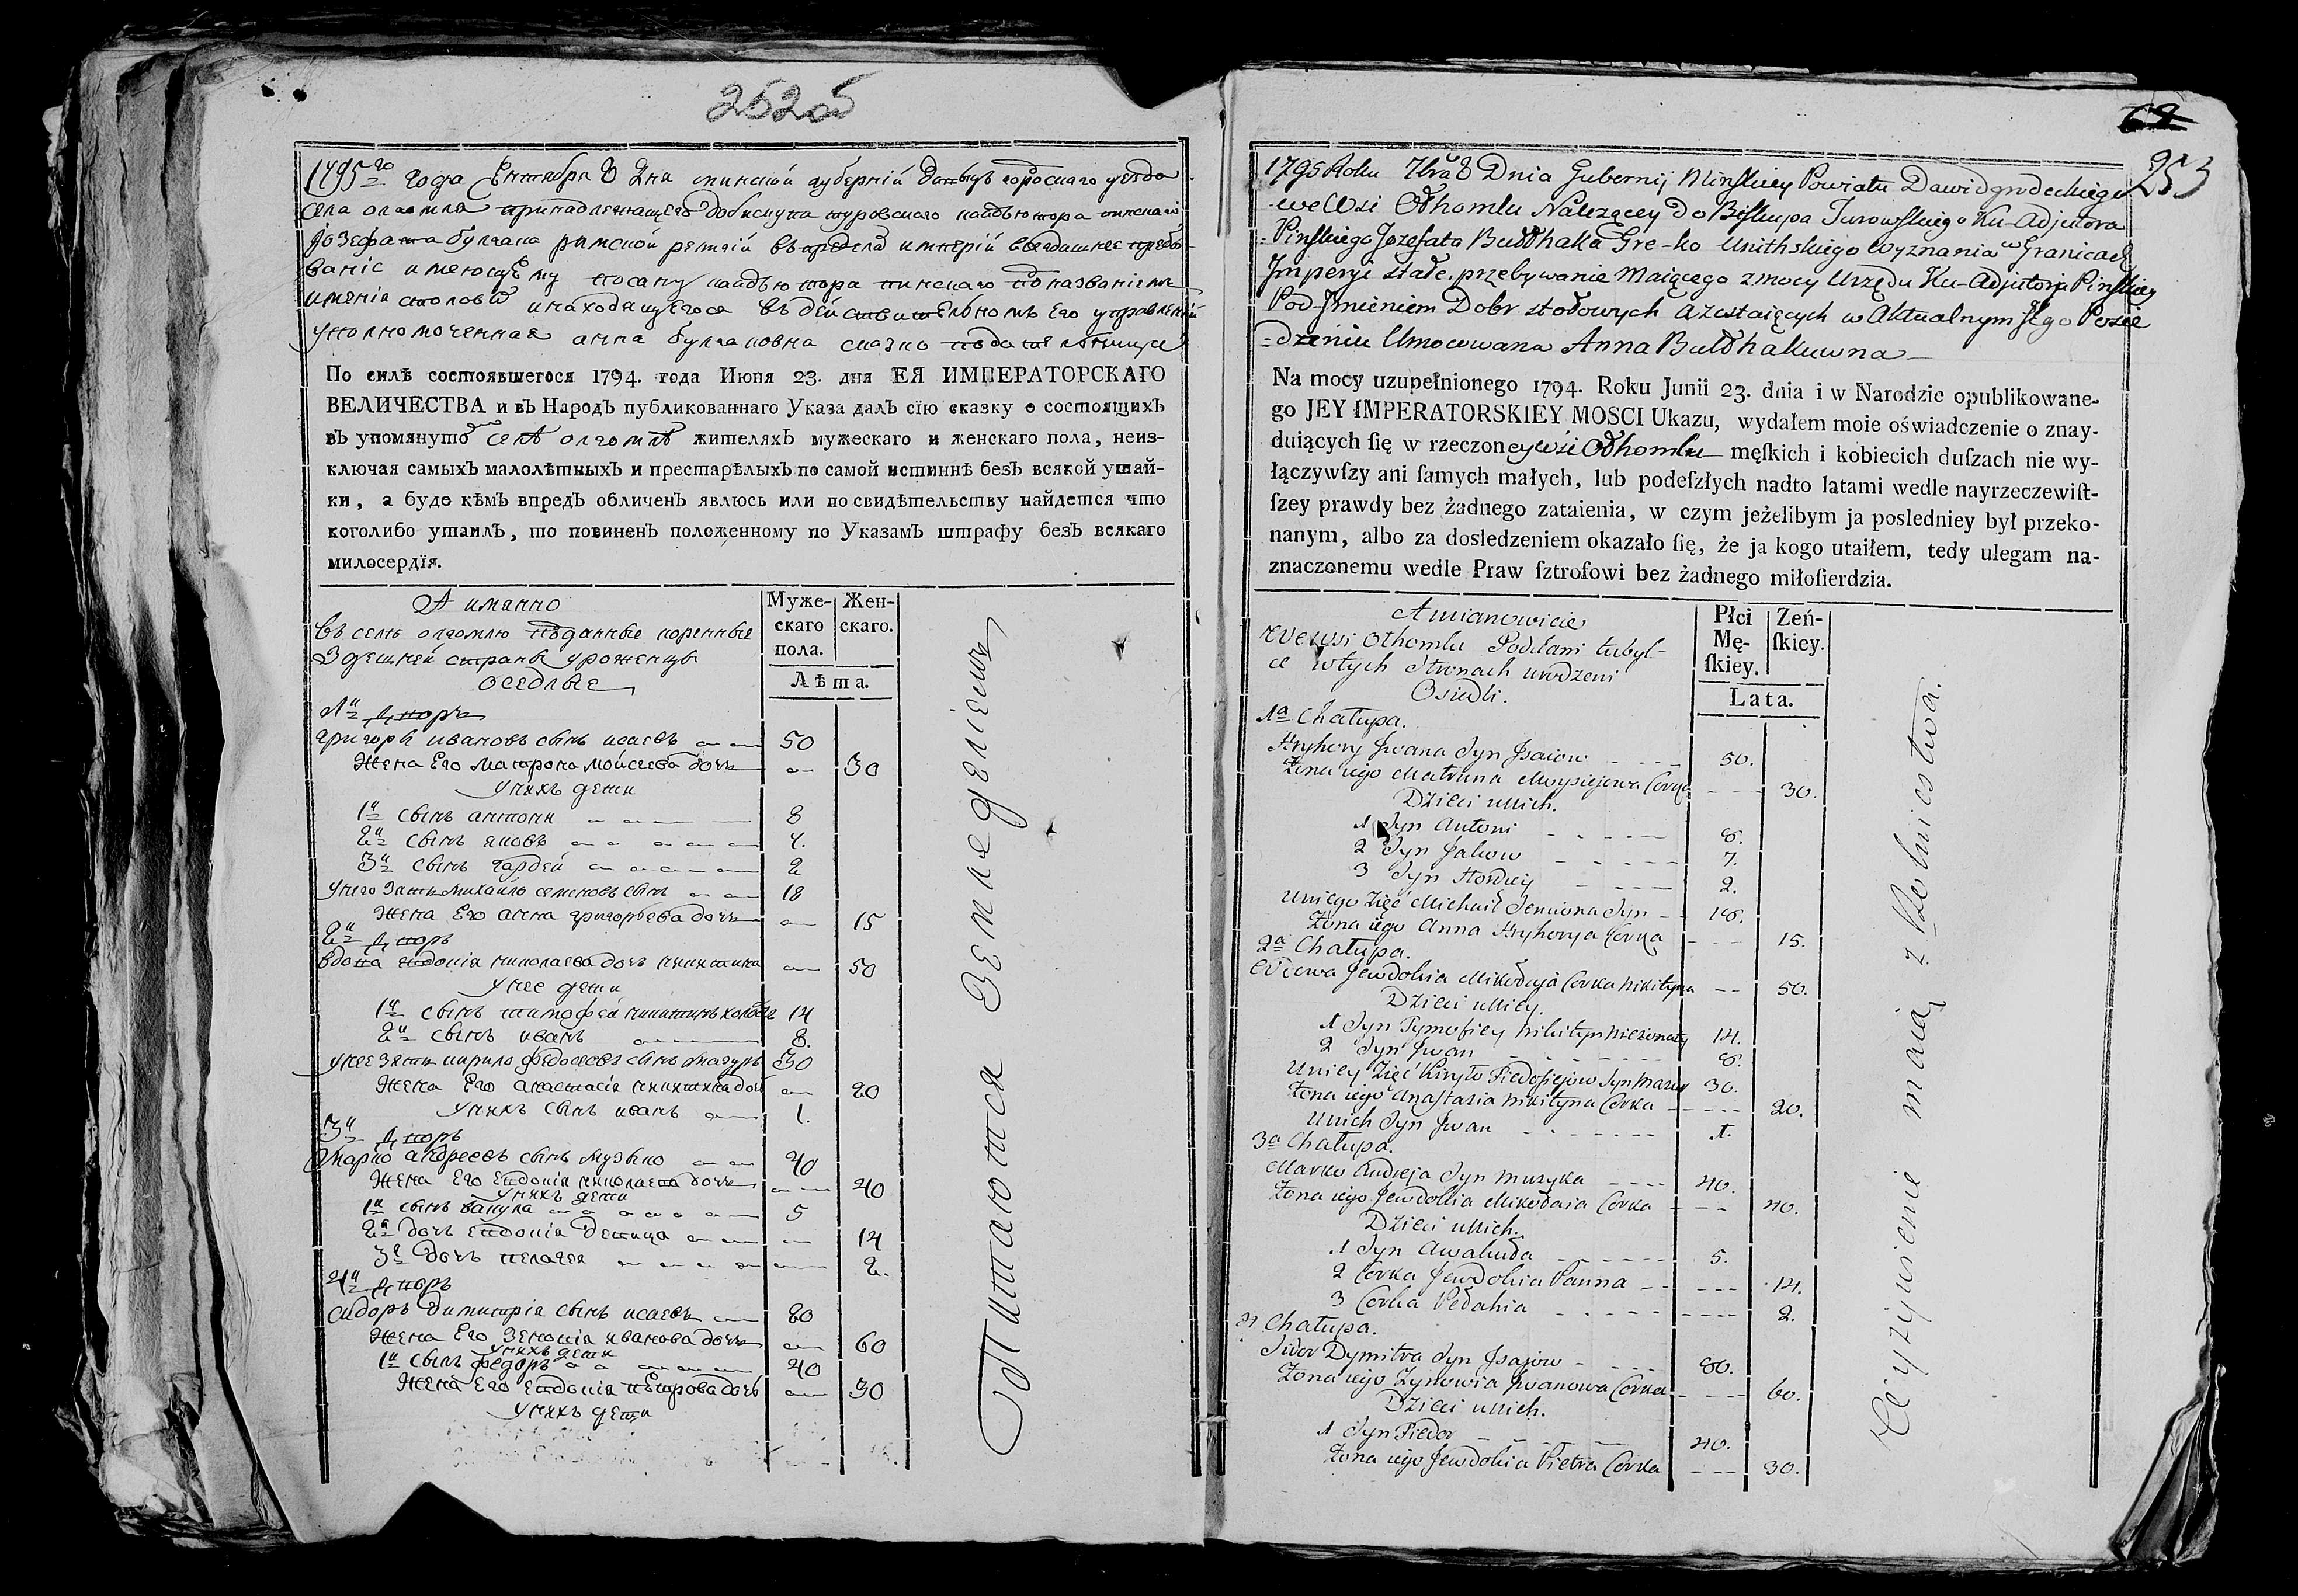 252об
1795го года Сентября 8 дня минской губерніи давыдъ городскаго уезда
села олгомля принадлежащего до бискупа туровского коадьютора пинскаго
Іозефата булгака римской религіи въ пределахъ имперіи всегдашнее пребы-
ваніе имеющему по сану коадьютора пинского по названіемъ
именія столовы и находящегося въ действительномъ его управленіи
уполномоченная анна булгаковна сказка
По силѣ состоявшегося 1794. года Июня 23. дня ЕЯ ИМПЕРАТОРСКАГО
ВЕЛИЧЕСТВА и въ Народъ публикованнаго Указа далъ сїю сказку о состоящихъ
въ упомянуто селѣ олгомлѣ жителяхъ мужескаго и женскаго пола, неиз-
ключая самыхъ малолѣтныхъ и престарѣлыхъ по самой истиннѣ безъ всякой утай-
ки, а будо кѣмъ впредъ обличенъ явлюсь или по свидѣтельству найдется что
коголибо утаилъ, то повиненъ положенному по Указамъ штрафу безъ всякаго
милосердїя.
А имянно
въ селе олгомлю подданные коренные
Здешней страны уроженцы
оседлые
Муже-
скаго
пола.
Жен-
скаго.
Лѣта.
1й дворъ
григорѣ ивановъ сынъ исаевъ 50
жена Его матрона мойсеева дочь 30
у нихъ дети
1й сынъ антони 8
2й сынъ яковъ 7.
3й сынъ гардей 2
у него зять михайло семеновъ сынъ 18
жена Его анна григорьева дочь 15
2й дворъ
вдова евдокія николаева дочь никитина 50
у нее дети
1й сынъ тимофей никитинъ холостъ 14
2й сынъ иванъ 8.
у нее зять кирило федосеевъ сынъ мазуръ 30
жена Его анастасія никитина дочь 20
у нихъ сынъ иванъ 1.
3й дворъ
Марко андреевъ сынъ музыко 40
жена Его Евдокія николаева дочь 40
у нихъ дети
1й сынъ вакула 5
2я дочь евдокія девица 14
3я дочь пелагея 2.
4й дворъ
сидоръ димитрія сынъ исаевъ 80
жена Его зеновія иванова дочь 60
у нихъ дети
1й сынъ федоръ 40
жена Его Евдокія петрова дочь 30
у нихъ дети
Питаются Земледеліемъ
62
253
1795 Roku 7bra 8 Dnia Gubernij Minskiey Powiatu Dawidgrodeckiego
we Wsi Olhomlu Należącey do Biskupa Turowskiego Ku-Adjutora
=Pinskiego Jozefata Bułhaka Gre-ko Unithskiego Wyznania w Granicach
Imperyi stałe. przebywanie Maiącego z mocy Urzędu Ku-Adjutorji Pinskiey
Pod-Imieniem Dobr stołowych a zostaiących w Aktualnym Jego Posie
=dzeniu Umocowana Anna Bułhakuwna
Na mocy uzupełnionego 1794. Roku Junii 23. dnia i w Narodzie opublikowane-
go JEY IMPERATORSKIEY MOSCI Ukazu, wydałem moie oświadczenie o znay-
duiących ſię w rzeczoney wsi Olhomlu męſkich i kobiecich duſzach nie wy-
łączywſzy ani ſamych małych, lub podeſzłych nadto latami wedle nayrzeczewiſt-
ſzey prawdy bez żadnego zataienia, w czym jeżelibym ja posledniey był przeko-
nanym, albo za dosledzeniem okazało ſię, że ja kogo utaiłem, tedy ulegam na-
znaczonemu wedle Praw ſztrofowi bez żadnego miłoſierdzia.
A mianowicie
We wsi Olhomlu Poddani tubyl-
ce w tych Stronach urodzeni
Osiedli.
Płci
Mę-
ſkiey.
Zeń-
ſkiey.
Lata.
1a Chałupa.
Hryhory Jwana Syn Jsaiow 50.
Żona iego Matruna Moysiejowa Corka 30.
Dzieci u nich.
1 Syn Antoni 8.
2 Syn Jakow 7.
3 Syn Hordiey 2.
U niego Zięć Michaił Semiona Syn 18.
Żona iego Anna Hryhorya Corka 15.
2a Chałupa.
Wdowa Jewdokia Mikołaja Corka Nikityna 50.
Dzieci u niey.
1 Syn Tymofiey Nikityn nieżonaty 14.
2 Syn Jwan 8.
U niey Zięć Kiryło Fiedosiejow Syn Mazur 30.
Żona iego Anastazia Nikityna Corka 20.
U nich Syn Jwan 1.
3a Chałupa.
Marko Andreja Syn Muzyka 40.
Żona iego Jewdokia Mikołaia Corka 40.
Dzieci u nich.
1 Syn Awakuła 5.
2 Corka Jewdokia Panna 14.
3 Corka Pełahia 2.
Chałupa.
Sidor Dymitra Syn Jsajow 80.
Żona iego Zynowia Jwanowa Corka 60.
Dzieci u nich.
1 Syn Fiedor 40.
Żona iego Jewdokia Pietra Corka 30.
Wyżywienie maią z Rolnictwa.